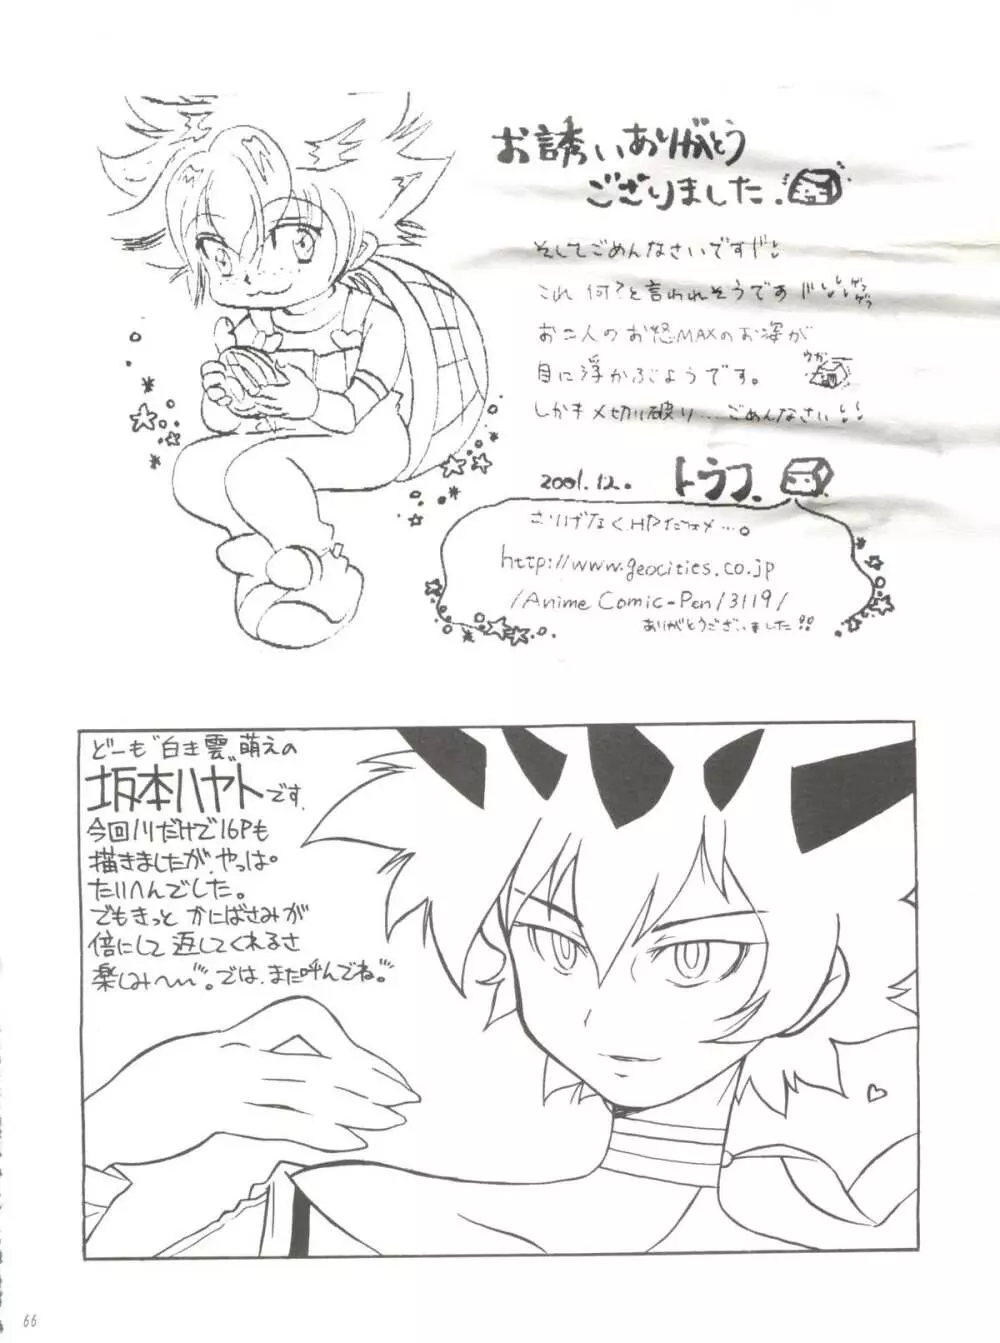 お誘いありがとう
ございました.
そしてごめんなさいですか
これ何?と言われそうです
お二人のお怒MAXのお姿が
ウガー
目に浮かぶようです。
しかも〆切り破り…ごめんなさい
2001.12. トラコ.
さりげなくHPだったりして…。
http://www.geocities.co.jp
/AnimeComic-Pen/3119/
ありがとうございました!!
どーも"白き雲"萌えの
坂本ハヤトです.
今回ノリだけで16Pも
描きましたが、やっぱ。
たいへんでした。
でもきっと かにばさみが
倍にして 返してくれるさ
楽しみ〜。では、また呼んでね。
66